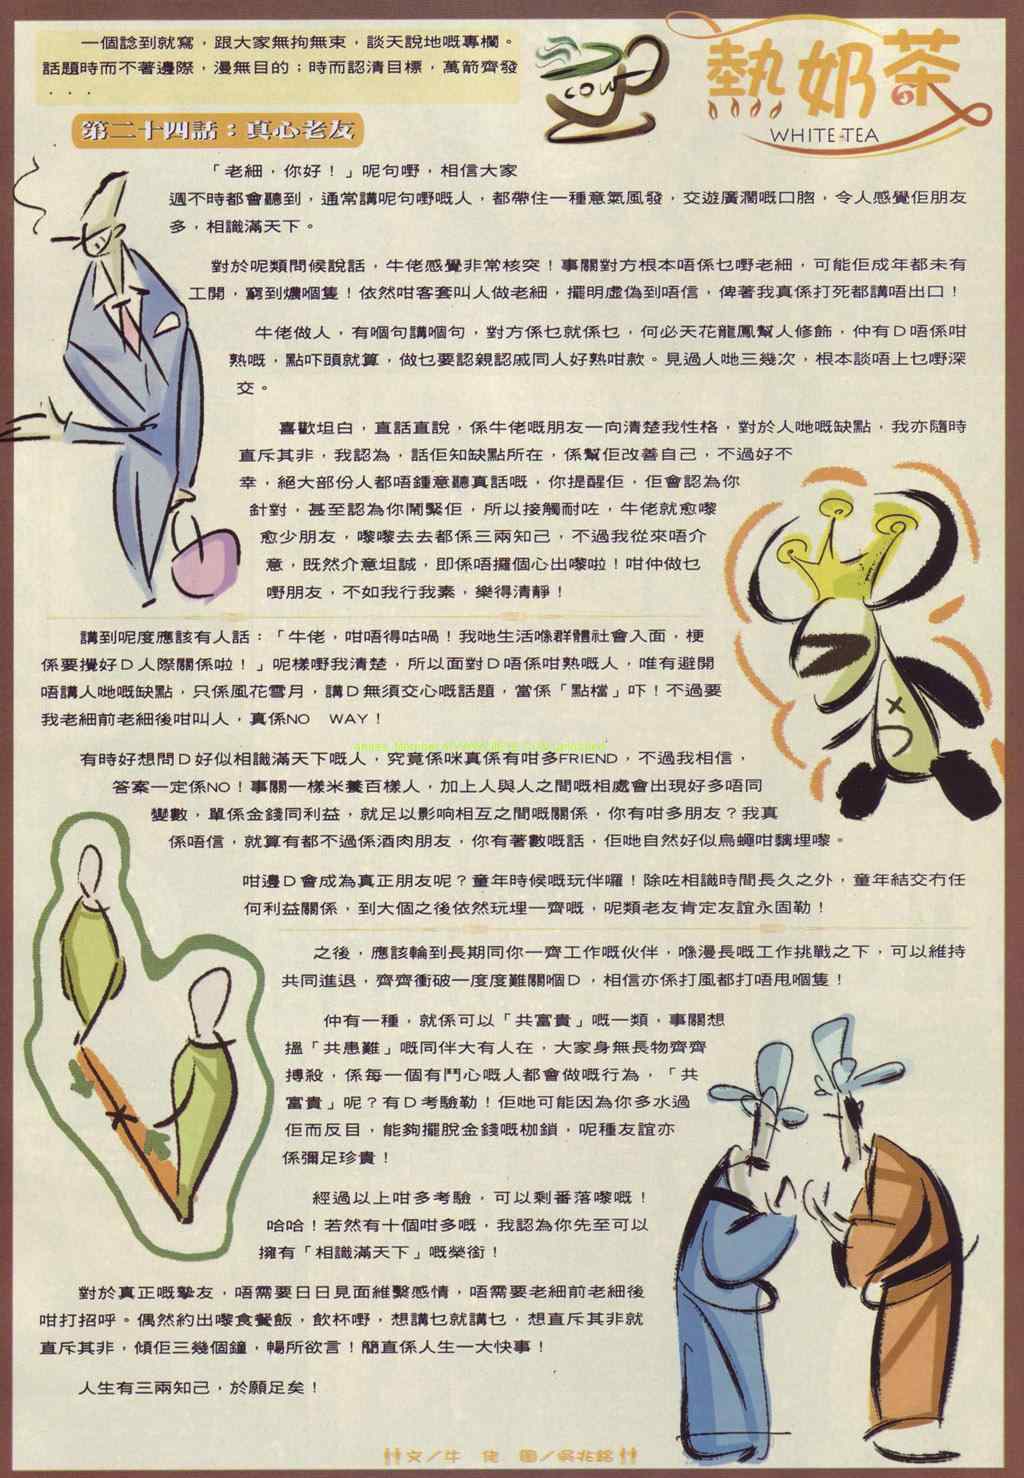 一個諗到就寫，跟大家無拘無束，談天說地嘅專欄。
話題時而不著邊際，漫無目的；時而認清目標，萬箭齊發
...
COW
熱奶茶
WHITE TEA
第二十四話：真心老友
「老細，你好！」呢句嘢，相信大家
週不時都會聽到，通常講呢句嘢嘅人，都帶住一種意氣風發，交遊廣濶嘅口脗，令人感覺佢朋友
多，相識滿天下。
對於呢類問候說話，牛佬感覺非常核突！事關對方根本唔係乜嘢老細，可能佢成年都未有
工開，窮到燶嗰隻！依然咁客套叫人做老細，擺明虛偽到唔信，俾著我真係打死都講唔出口！
牛佬做人，有嗰句講嗰句，對方係乜就係乜，何必天花龍鳳幫人修飾，仲有D唔係咁
熟嘅，點吓頭就算，做乜要認親認戚同人好熟咁款。見過人哋三幾次，根本談唔上乜嘢深
交。
喜歡坦白，直話直說，係牛佬嘅朋友一向清楚我性格，對於人哋嘅缺點，我亦隨時
直斥其非，我認為，話佢知缺點所在，係幫佢改善自己，不過好不
幸，絕大部份人都唔鍾意聽真話嘅，你提醒佢，佢會認為你
針對，甚至認為你鬧緊佢，所以接觸耐咗，牛佬就愈嚟
愈少朋友，嚟嚟去去都係三兩知己，不過我從來唔介
意，既然介意坦誠，即係唔攞個心出嚟啦！咁仲做乜
嘢朋友，不如我行我素，樂得清靜！
講到呢度應該有人話：「牛佬，咁唔得咕喎！我哋生活喺群體社會入面，梗
係要攪好D人際關係啦！」呢樣嘢我清楚，所以面對D唔係咁熟嘅人，唯有避開
唔講人哋嘅缺點，只係風花雪月，講D無須交心嘅話題，當係「點檔」吓！不過要
我老細前老細後咁叫人，真係NO WAY！
有時好想問D好似相識滿天下嘅人，究竟係咪真係有咁多FRIEND，不過我相信，
答案一定係NO！事關一樣米養百樣人，加上人與人之間嘅相處會出現好多唔同
變數，單係金錢同利益，就足以影响相互之間嘅關係，你有咁多朋友？我真
係唔信，就算有都不過係酒肉朋友，你有著數嘅話，佢哋自然好似烏蠅咁黐埋嚟。
咁邊D會成為真正朋友呢？童年時候嘅玩伴囉！除咗相識時間長久之外，童年結交冇任
何利益關係，到大個之後依然玩埋一齊嘅，呢類老友肯定友誼永固勒！
之後，應該輪到長期同你一齊工作嘅伙伴，喺漫長嘅工作挑戰之下，可以維持
共同進退，齊齊衝破一度度難關嗰D，相信亦係打風都打唔甩嗰隻！
仲有一種，就係可以「共富貴」嘅一類，事關想
搵「共患難」嘅同伴大有人在，大家身無長物齊齊
搏殺，係每一個有鬥心嘅人都會做嘅行為，「共
富貴」呢？有D考驗勒！佢哋可能因為你多水過
佢而反目，能夠擺脫金錢嘅枷鎖，呢種友誼亦
係彌足珍貴！
經過以上咁多考驗，可以剩番落嚟嘅！
哈哈！若然有十個咁多嘅，我認為你先至可以
擁有「相識滿天下」嘅榮銜！
對於真正嘅摯友，唔需要日日見面維繫感情，唔需要老細前老細後
咁打招呼。偶然約出嚟食餐飯，飲杯嘢，想講乜就講乜，想直斥其非就
直斥其非，傾佢三幾個鐘，暢所欲言！簡直係人生一大快事！
人生有三兩知己，於願足矣！
文／牛 佬 圖／吳兆銘